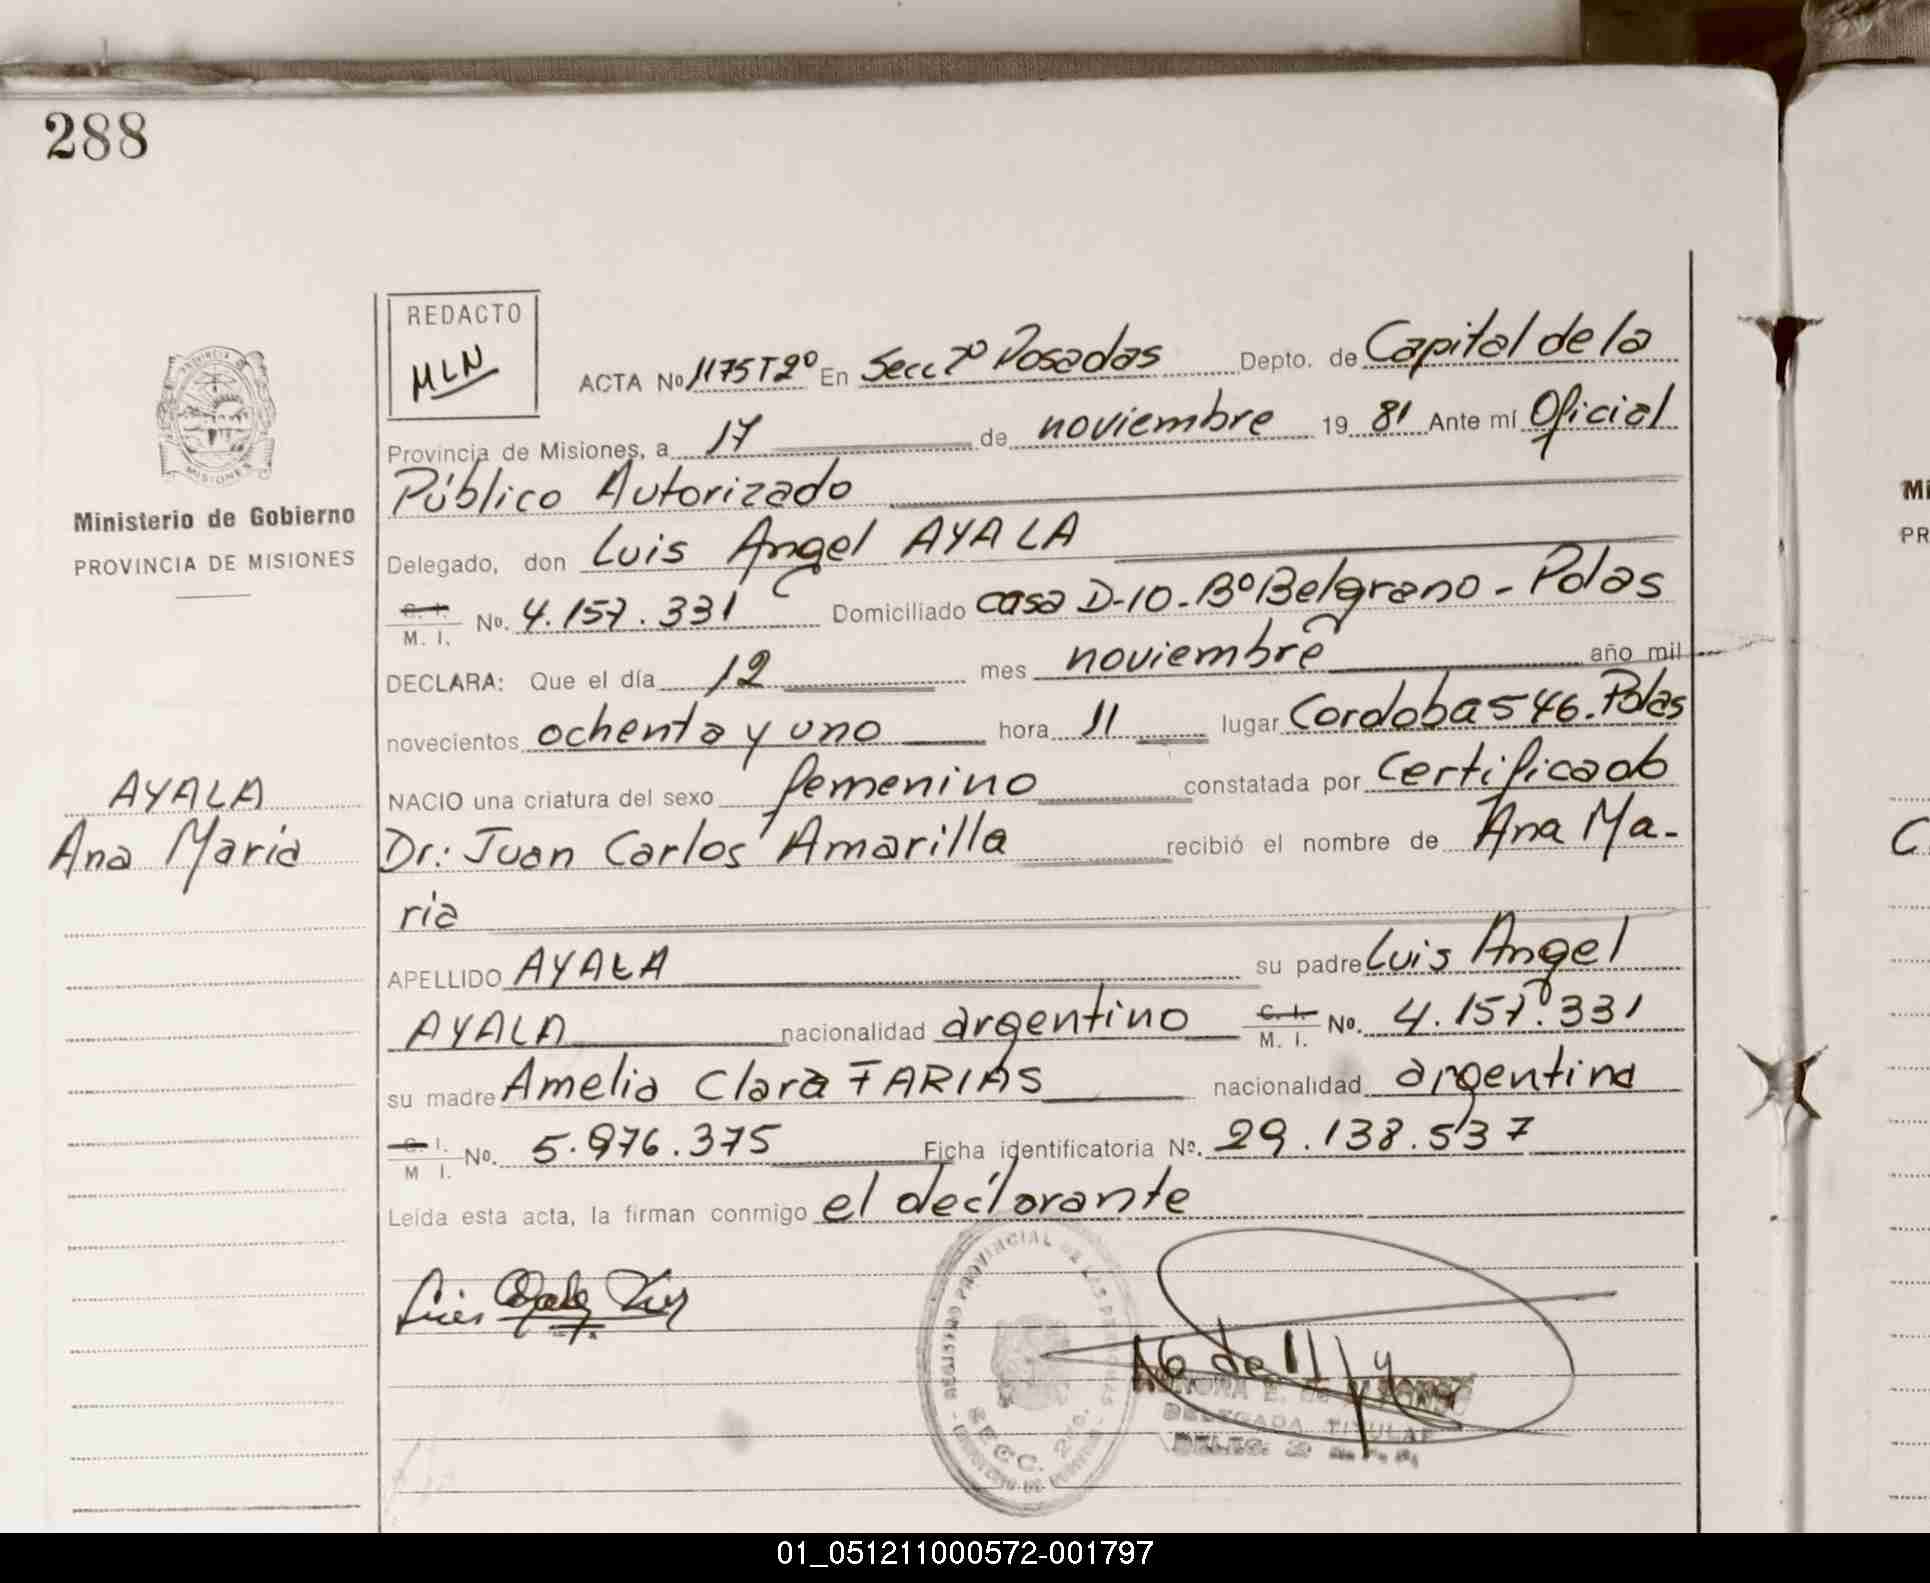 288
REDACTO
MLN
ACTA No 1175 T 2º En Secc 2º Posadas Depto. de Capital de la
Provincia de Misiones, a 17 de noviembre 19 81 Ante mí Oficial
Público Autorizado
Ministerio de Gobierno
PROVINCIA DE MISIONES
Delegado, don Luis Angel AYALA
C. I.
M. I. No. 4.157.331 Domiciliado casa D-10-Bº Belgrano - Pdas
DECLARA: Que el día 12 mes noviembre año mil
novecientos ochenta y uno hora 11 lugar Cordoba 546. Pdas
NACIO una criatura del sexo femenino constatada por Certificado
AYALA
Ana Maria
Dr.: Juan Carlos Amarilla recibió el nombre de Ana Ma-
ria
APELLIDO AYALA su padre Luis Angel
AYALA nacionalidad argentino C. I. M. I. No. 4.157.331
su madre Amelia Clara FARIAS nacionalidad argentina
C. I.
M I. No. 5.976.375 Ficha identificatoria No. 29.138.537
Leída esta acta, la firman conmigo el declarante
REGISTRO PROVINCIAL DE LAS PERSONAS
SECC. 2da.
DELEGADA TITULAR
DELEG. 2
Mi
PR
C
01_051211000572-001797